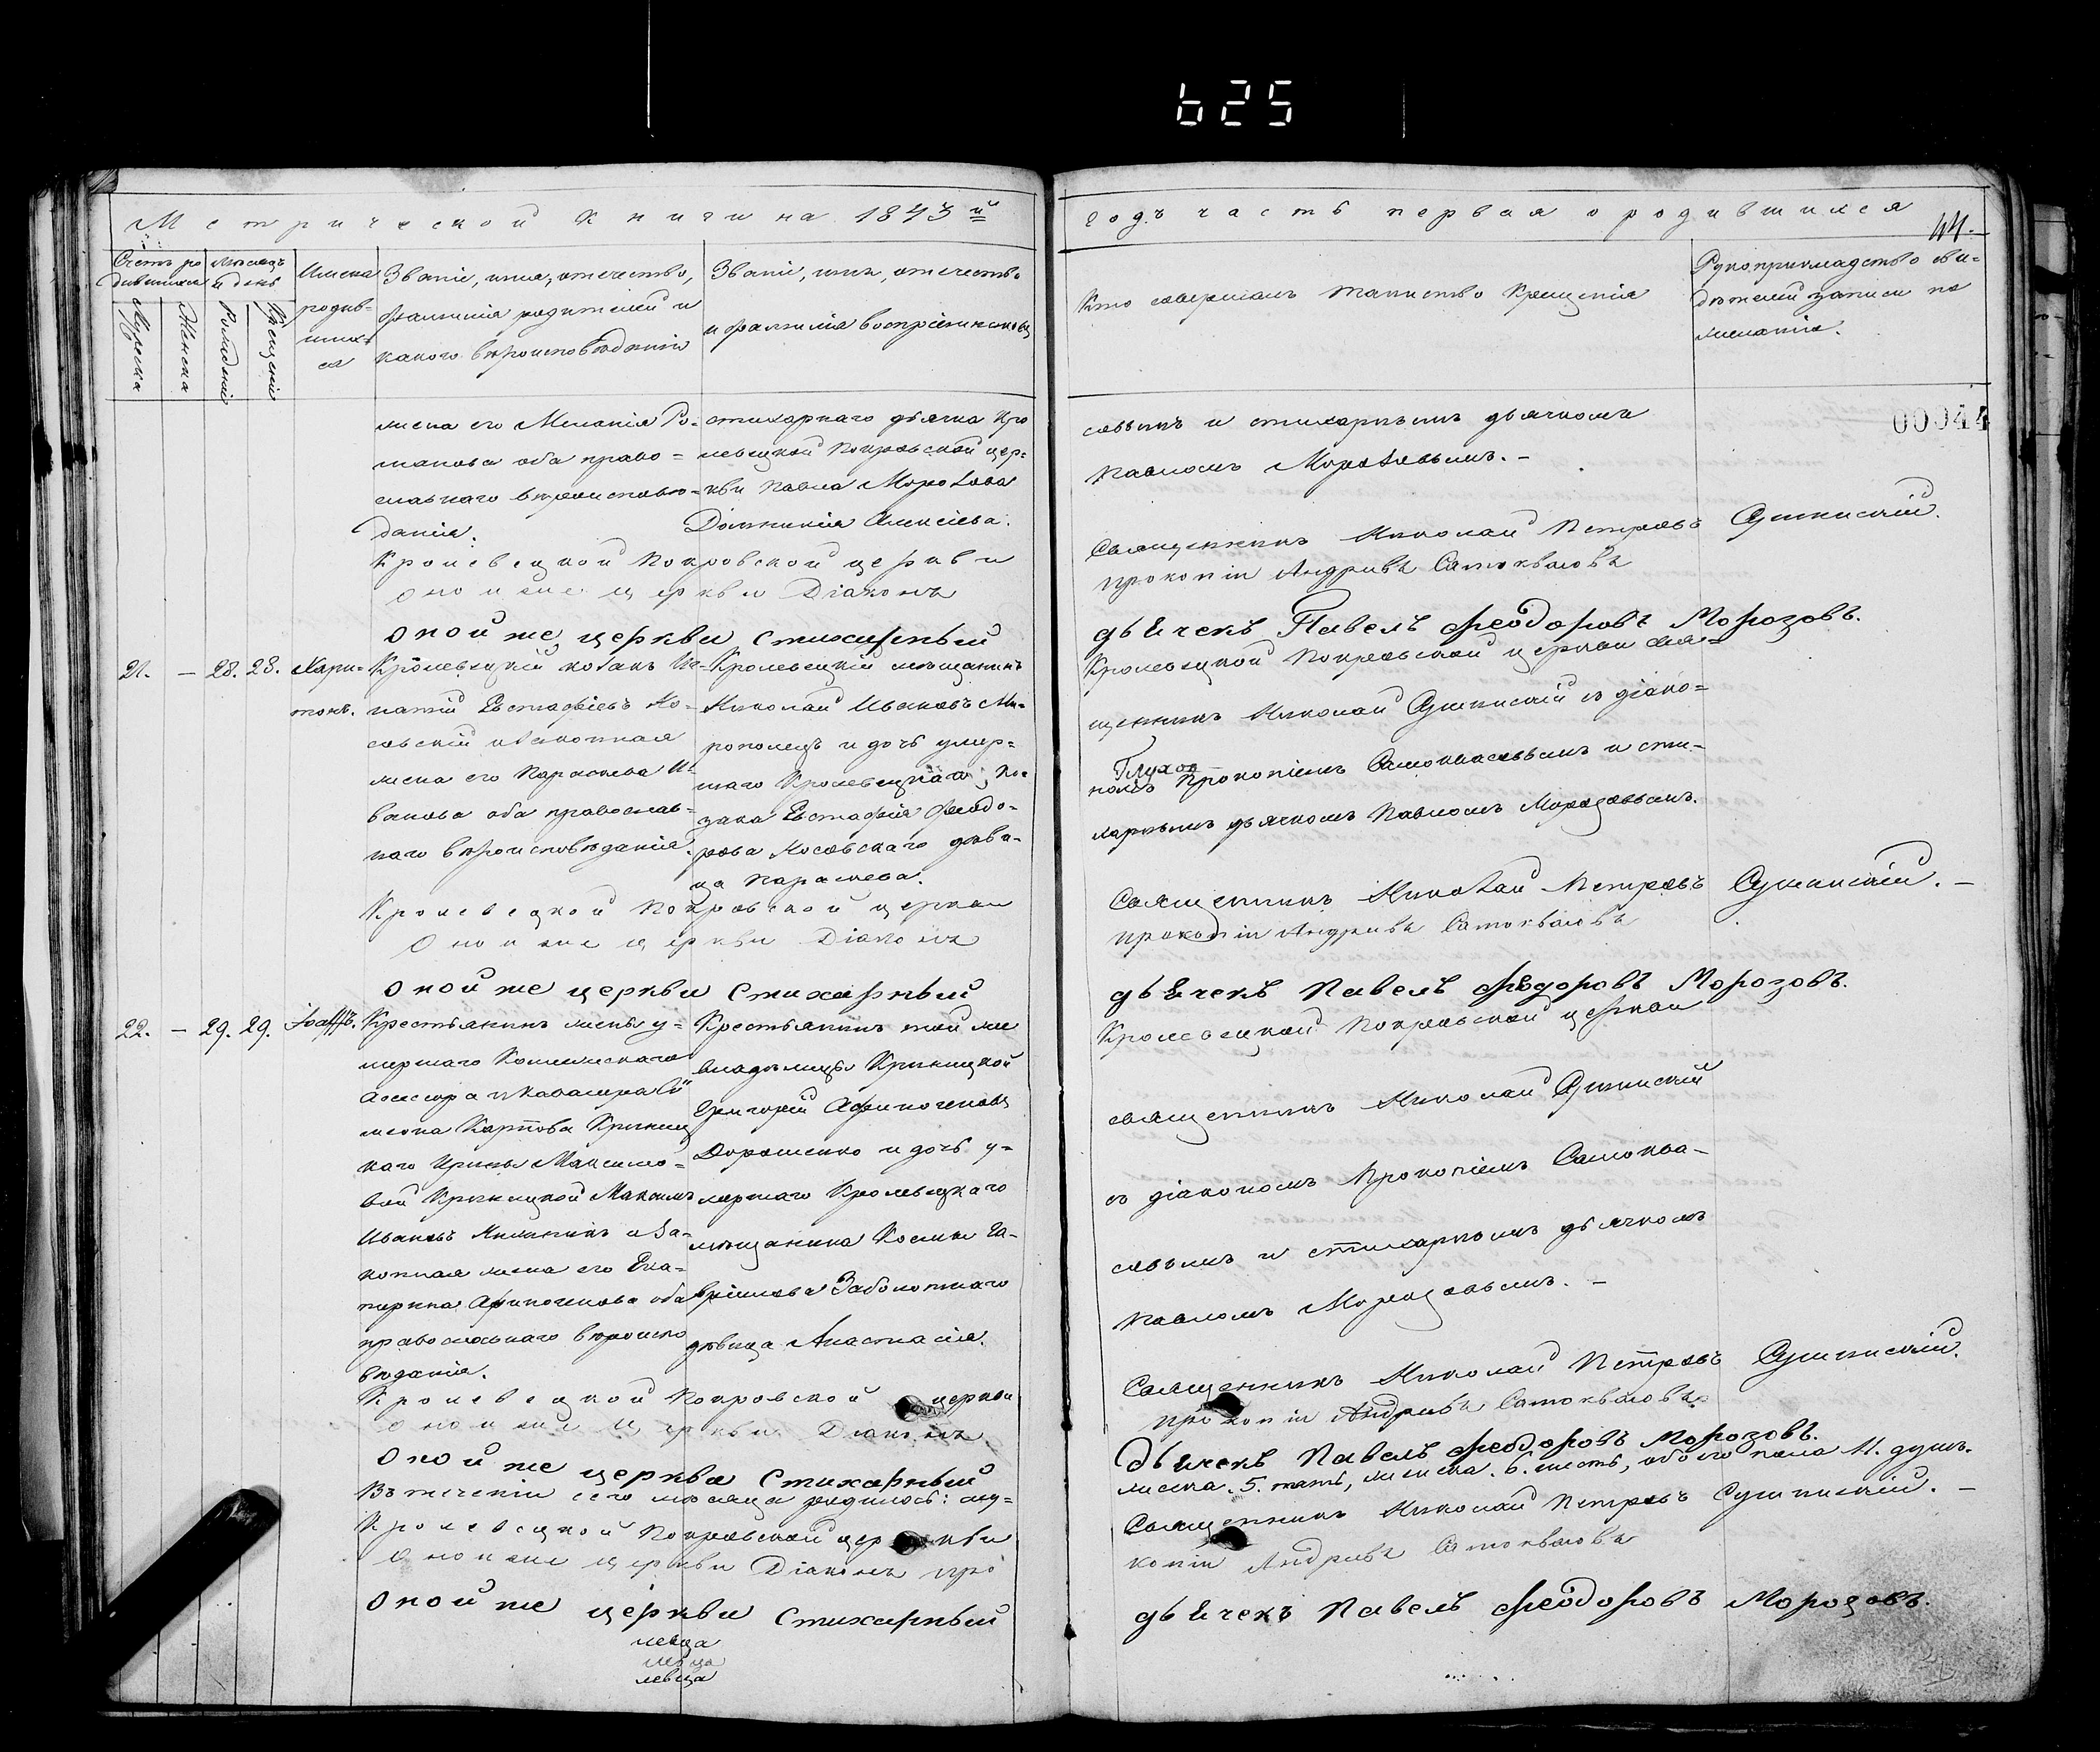 625
Метрической книги на 1843й
годъ часть первая о родившихся
44.
Счетъ ро
дившихся
Мужеска
Женска
Мѣсяцъ
и день
Рожденія
Крещенія
Имена
родив-
ших-
ся
Званіе, имя, отечество,
фамилія родителей и
какого вѣроисповѣданія
Званіе, имя, отечество
и фамилія воспріемниковъ
Кто совершалъ таинство крещенія
Рукоприкладство сви-
дѣтелей записи по
желанію.
00044
жена его Меланія Ро-
манова оба право=
славнаго вѣроисповѣ-
данія.
стихарнаго дьячка Кро
левецкой Покровской цер=
кви Павла Морозова
Домникія Алексіева.
совымъ и стихарнымъ дьячкомъ
Павломъ Морозовымъ. -
Кролевецкой Покровской церкви
Священникъ Николай Петровъ Сушинскій.
Оной же церкви Діаконъ
Прокопій Андріевъ Самоквасовъ
Оной же церкви стихарный
дьячекъ Павелъ Феодоровъ Морозовъ.
21. - 28. 28.
Хари-
тонъ.
Кролевецкій козакъ Иг-
натій Евстафіевъ Но-
совскій и законная
жена его Параскева И-
ванова оба православ-
наго вѣроисповѣданія.
Кролевецкій мѣщанинъ
Николай Ивановъ Ми-
рополецъ и дочь умер=
шаго Кролевецкаго ко-
зака Евстафія Феодо-
рова Носовскаго дѣви-
ца Параскева.
Кролевецкой Покровской церкви свя-
щенникъ Николай Сушинскій съ діако=
Глухов
номъ Прокопіемъ Самоквасовымъ и сти-
харнымъ дьячкомъ Павломъ Морозовымъ.
Кролевецкой Покровской церкви
Священникъ Николай Петровъ Сушинскій. -
Оной же церкви Діаконъ
Прокопій Андріевъ Самоквасовъ
Оной же церкви Стихарный
дьячекъ Павелъ Федоровъ Морозовъ.
22. - 29. 29.
Іоаннъ.
Крестьянинъ жены у-
мершаго Коллежскаго
Асессора и Кавалера Си
меона Карпова Криниц
каго Ирины Максимо-
вой Криницкой Максимъ
Ивановъ и За-
конная жена его Ека-
терина Афиногенова оба
православнаго вѣроиспо
вѣданія.
Крестьянинъ той же
владѣлицы Криницкой
Григорій Афиногеновъ
Дорошенко и дочь у-
мершаго Кролевецкаго
мѣщанина Космы Га-
вріилова Заболотнаго
дѣвица Анастасія.
Кролевецкой Покровской церкви
священникъ Николай Сушинскій
съ діакономъ Прокопіемъ Самоква-
совымъ и стихарнымъ дьячкомъ
Павломъ Морозовымъ. -
Кролевецкой Покровской церкви
Священникъ Николай Петровъ Сушинскій.
Оной же церкви Діаконъ
Прокопій Андріевъ Самоквасовъ
Оной же церкви Стихарный
дьячекъ Павелъ Феодоровъ Морозовъ.
Въ теченіи сего мѣсяца родилось: му=
жеска. 5. пять, женска. 6. шесть, обоего пола 11. душъ.
Кролевецкой Покровской церкви
Священникъ Николай Петровъ Сушинскій. -
Оной же церкви Діаконъ Про
копій Андріевъ Самоквасовъ
Оной же церкви Стихарный
дьячекъ Павелъ Феодоровъ Морозовъ.
левца
левца
левца